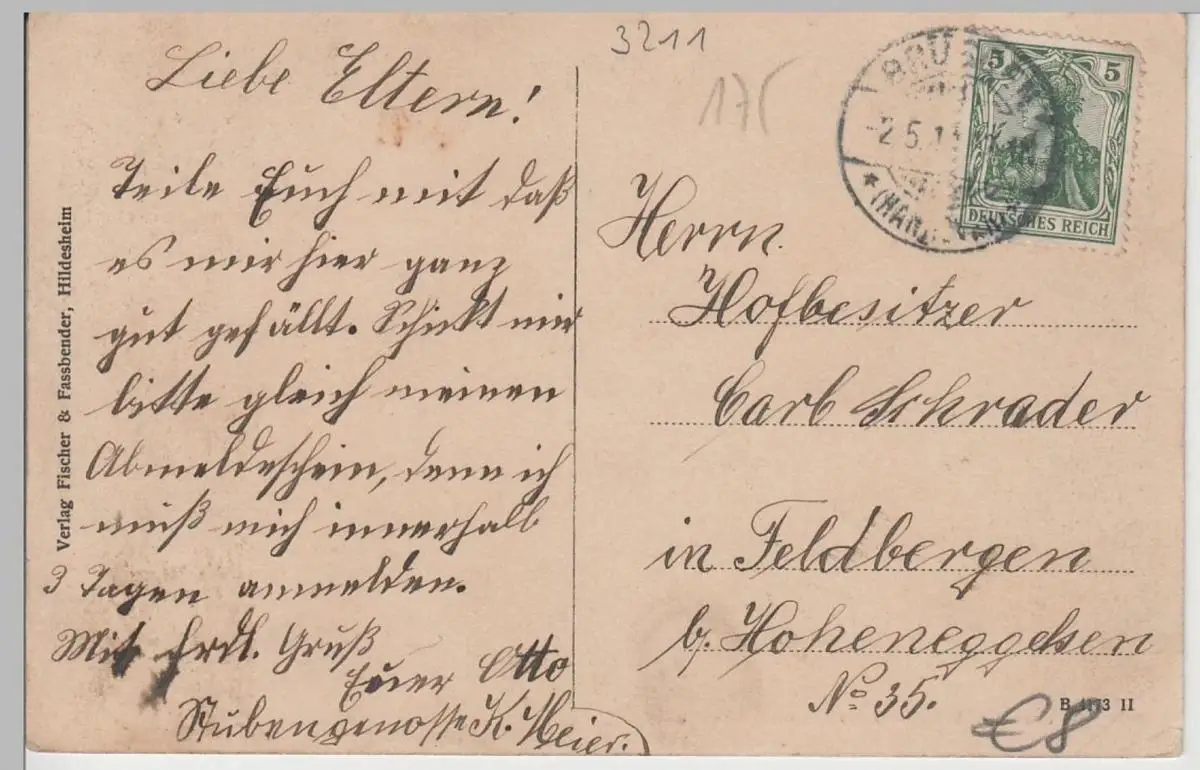 3211
175
Liebe Eltern!
Teile Euch mit daß
es mir hier ganz
gut gefällt. Schickt mir
bitte gleich meinen
Abmeldeschein, denn ich
muß mich innerhalb
3 Tagen anmelden.
Mit frdl. Gruß
Euer Otto
Stubengenosse K. Meier.
Verlag Fischer & Fassbender, Hildesheim
5 5
DEUTSCHES REICH
2.5.1
Herrn
Hofbesitzer
Carl Schrader
in Feldbergen
b. Hoheneggelsen
No 35.
B 4173 II
€8